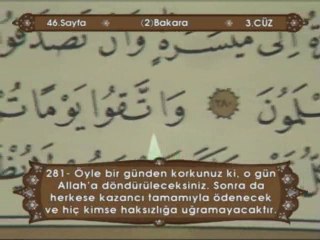 46.Sayfa (2)Bakara 3.CÜZ
إِلَىٰ مَيْسَرَةٍ وَأَن تَصَدَّقُوا
وَاتَّقُوا يَوْمًا
281- Öyle bir günden korkunuz ki, o gün
Allah'a döndürüleceksiniz. Sonra da
herkese kazancı tamamıyla ödenecek
ve hiç kimse haksızlığa uğramayacaktır.